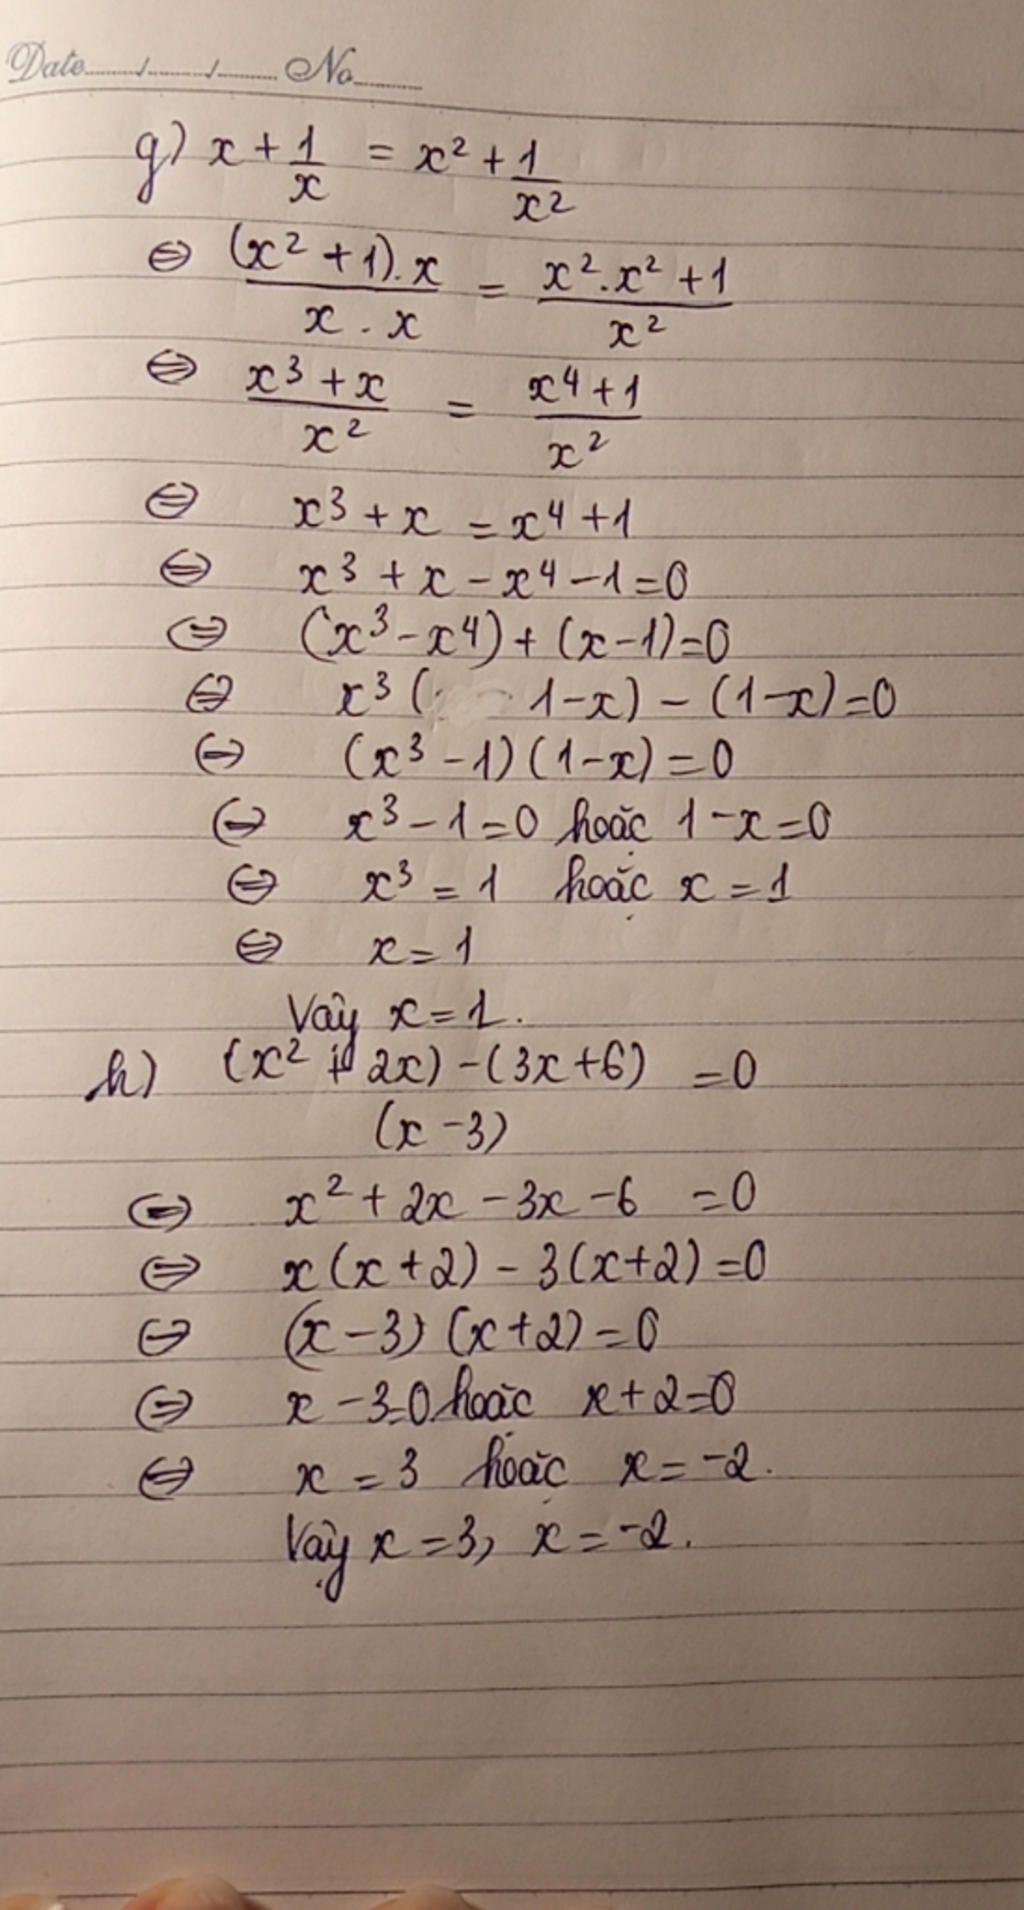 Date ... / ... / ... No ...
g) x + 1/x = x² + 1/x²
⇔ (x² + 1).x / x . x = x².x² + 1 / x²
⇔ x³ + x / x² = x⁴ + 1 / x²
⇔ x³ + x = x⁴ + 1
⇔ x³ + x - x⁴ - 1 = 0
⇔ (x³ - x⁴) + (x - 1) = 0
⇔ x³ ( 1 - x) - (1 - x) = 0
⇔ (x³ - 1) (1 - x) = 0
⇔ x³ - 1 = 0 hoặc 1 - x = 0
⇔ x³ = 1 hoặc x = 1
⇔ x = 1
Vậy x = 1.
h) (x² + 2x) - (3x + 6) / (x - 3) = 0
⇔ x² + 2x - 3x - 6 = 0
⇔ x (x + 2) - 3 (x + 2) = 0
⇔ (x - 3) (x + 2) = 0
⇔ x - 3 = 0 hoặc x + 2 = 0
⇔ x = 3 hoặc x = -2.
Vậy x = 3, x = -2.